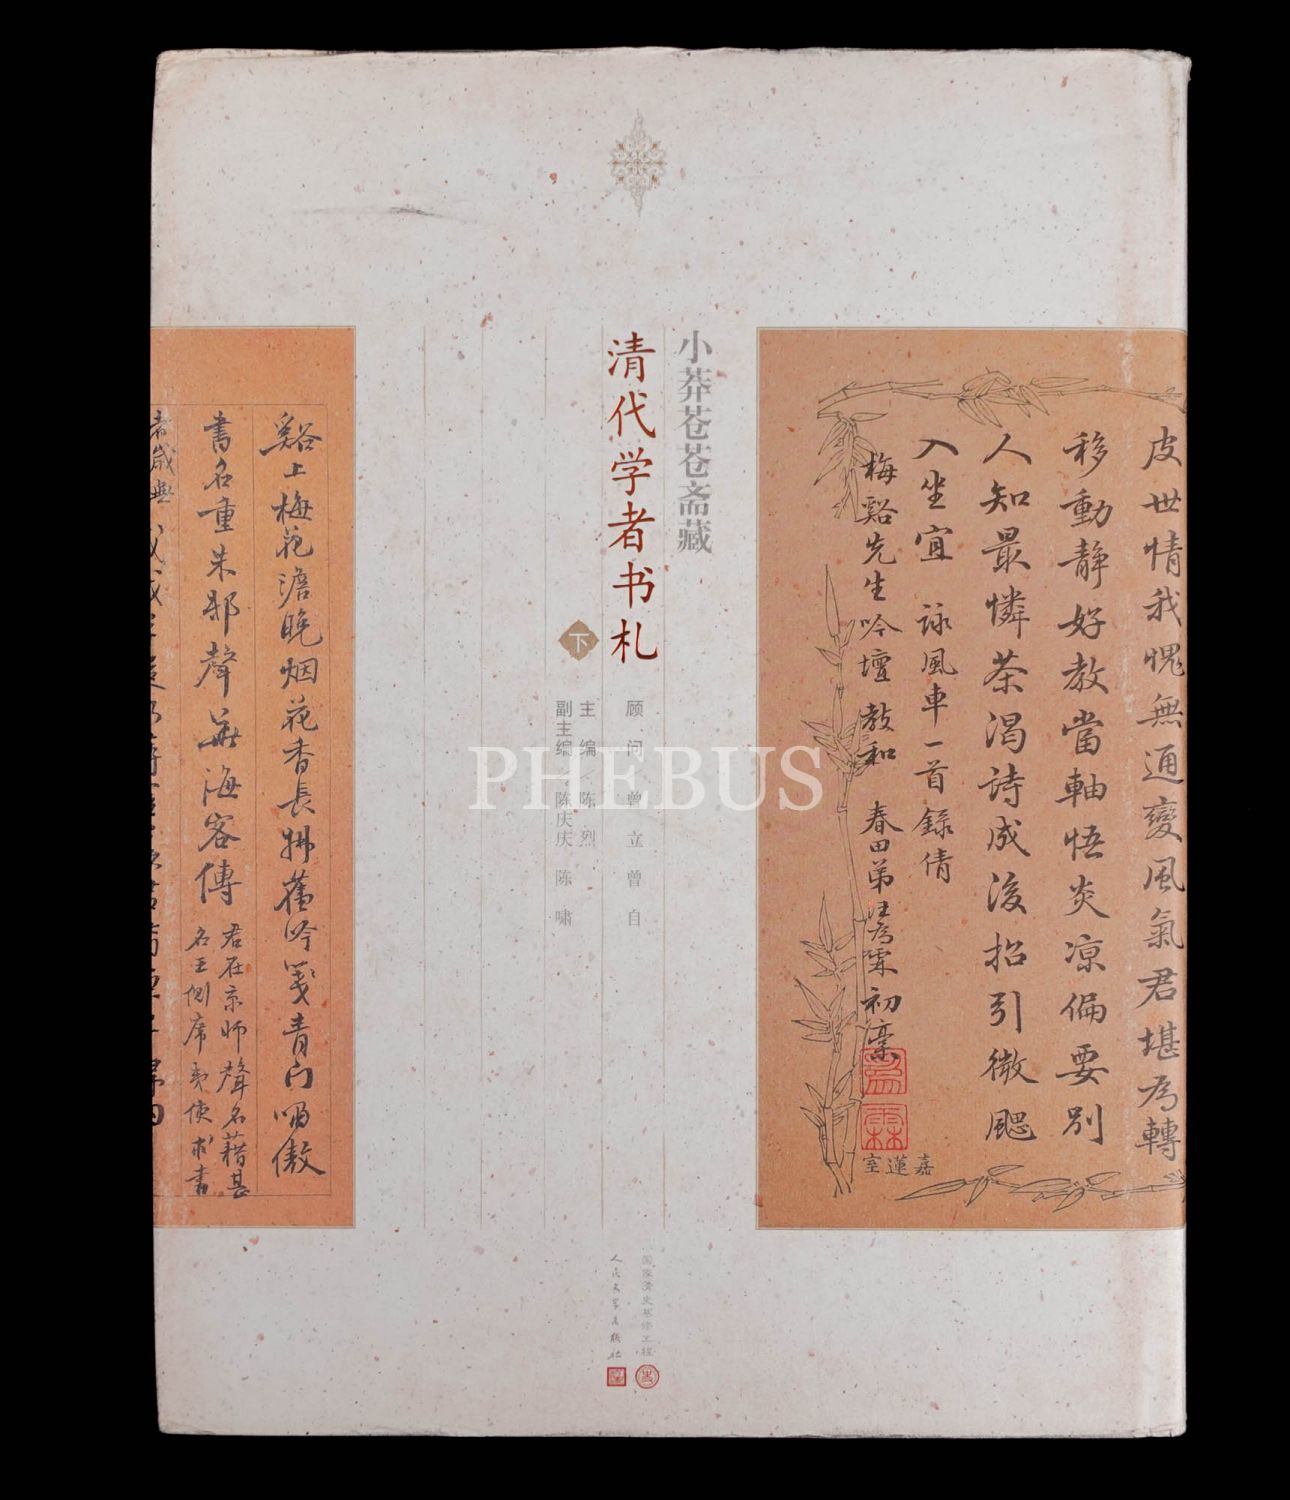 小莽苍苍斋藏
清代学者书札
下
顾 问 曾立 曾自
主 编 陈烈
副主编 陈庆庆 陈啸
皮世情我愧無通變風氣君堪為轉
移動靜好教當軸悟炎凉偏要別
人知最憐茶渴詩成後招引微颸
入坐宜 詠風車一首錄倩
梅谿先生吟壇教和 春田弟汪為霖初稾
為霖
嘉蓮室
谿上梅花澹晚烟花香長拂舊吟箋青门嘯傲
書名重朱邸聲華海客傳
君在京师聲名藉甚
名王側席 使求書
国家清史纂修工程
人民文学出版社
PHEBUS